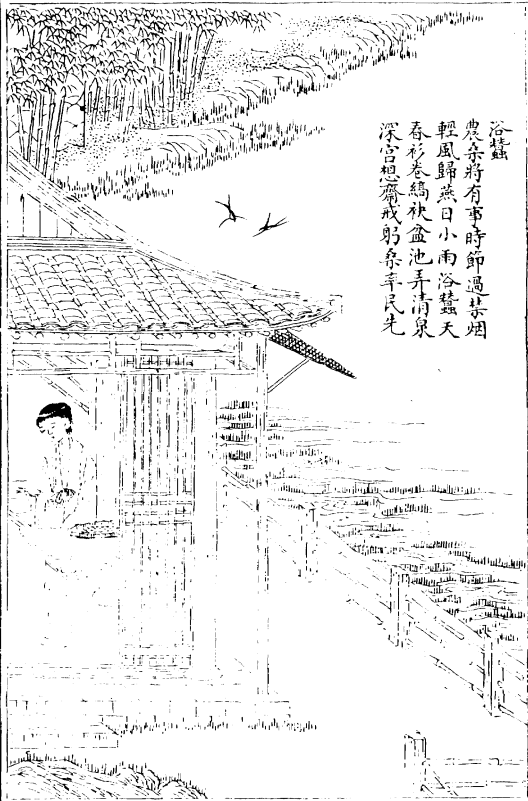 浴蠶
農桑將有事時節過禁烟
輕風歸燕日小雨浴蠶天
春衫卷縞袂盆池弄清泉
深宫想齋戒躬桑率民先